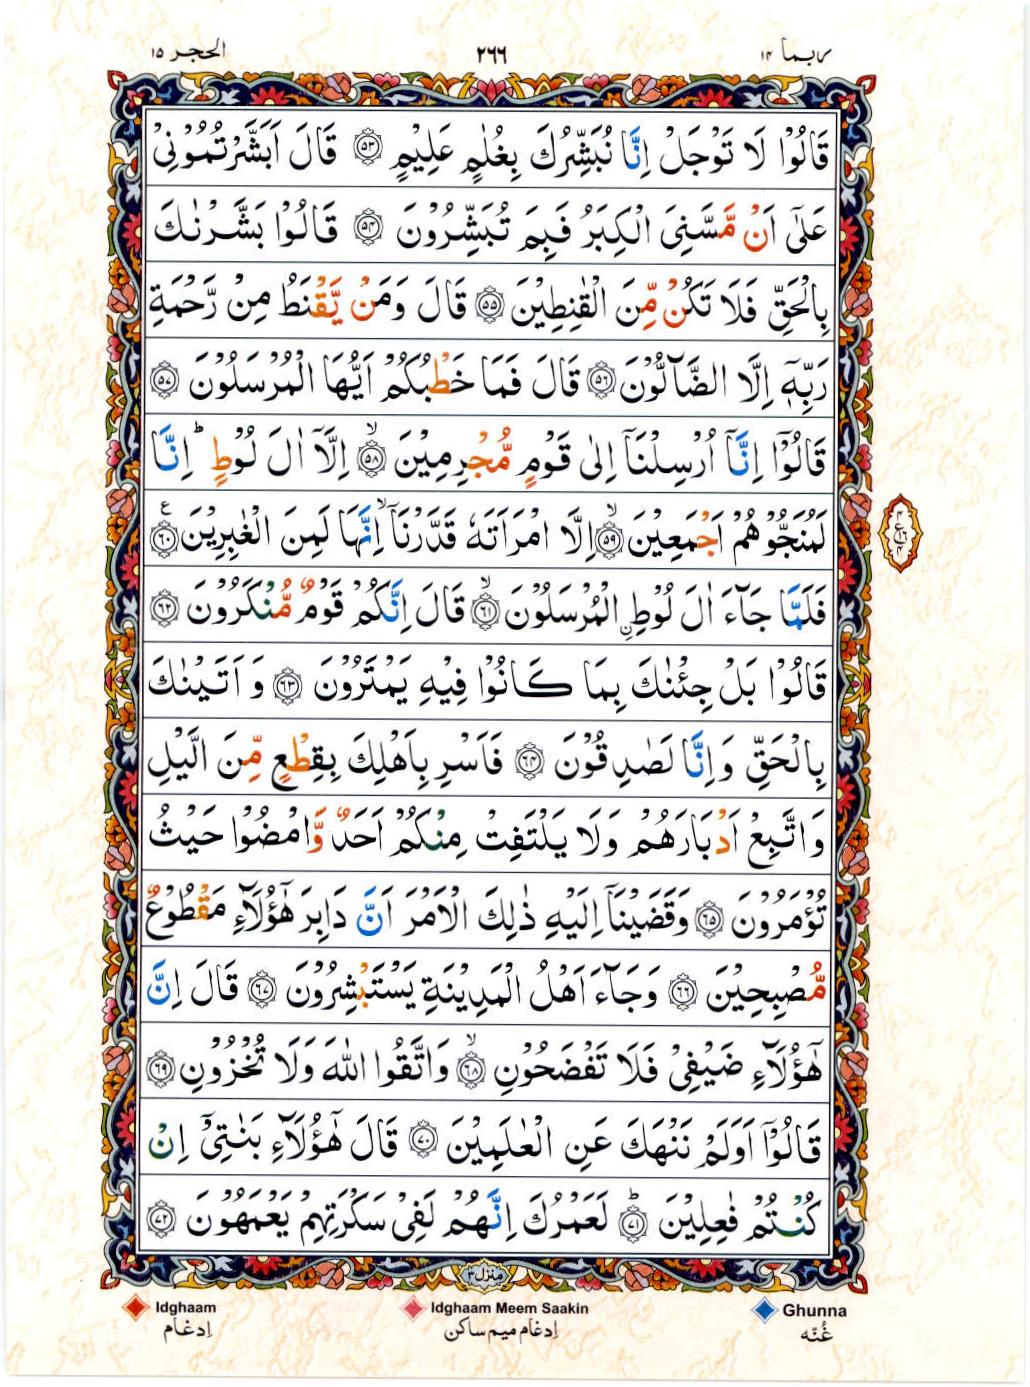 ربما ۱۴
۲۶۶
الحجر ۱۵
قَالُوْا لَا تَوْجَلْ اِنَّا نُبَشِّرُكَ بِغُلٰمٍ عَلِيْمٍ ۝۵۳ قَالَ اَبَشَّرْتُمُوْنِيْ
عَلٰٓى اَنْ مَّسَّنِيَ الْكِبَرُ فَبِمَ تُبَشِّرُوْنَ ۝۵۴ قَالُوْا بَشَّرْنٰكَ
بِالْحَقِّ فَلَا تَكُنْ مِّنَ الْقٰنِطِيْنَ ۝۵۵ قَالَ وَمَنْ يَّقْنَطُ مِنْ رَّحْمَةِ
رَبِّهٖٓ اِلَّا الضَّآلُّوْنَ ۝۵۶ قَالَ فَمَا خَطْبُكُمْ اَيُّهَا الْمُرْسَلُوْنَ ۝۵۷
قَالُوْٓا اِنَّآ اُرْسِلْنَآ اِلٰى قَوْمٍ مُّجْرِمِيْنَ ۙ۝۵۸ اِلَّآ اٰلَ لُوْطٍ ؕ اِنَّا
لَمُنَجُّوْهُمْ اَجْمَعِيْنَ ۙ۝۵۹ اِلَّا امْرَاَتَهٗ قَدَّرْنَآ ۙ اِنَّهَا لَمِنَ الْغٰبِرِيْنَ ۝۶۰ع
فَلَمَّا جَآءَ اٰلَ لُوْطِ ۨالْمُرْسَلُوْنَ ۙ۝۶۱ قَالَ اِنَّكُمْ قَوْمٌ مُّنْكَرُوْنَ ۝۶۲
قَالُوْا بَلْ جِئْنٰكَ بِمَا كَانُوْا فِيْهِ يَمْتَرُوْنَ ۝۶۳ وَ اَتَيْنٰكَ
بِالْحَقِّ وَاِنَّا لَصٰدِقُوْنَ ۝۶۴ فَاَسْرِ بِاَهْلِكَ بِقِطْعٍ مِّنَ الَّيْلِ
وَاتَّبِعْ اَدْبَارَهُمْ وَلَا يَلْتَفِتْ مِنْكُمْ اَحَدٌ وَّامْضُوْا حَيْثُ
تُؤْمَرُوْنَ ۝۶۵ وَقَضَيْنَآ اِلَيْهِ ذٰلِكَ الْاَمْرَ اَنَّ دَابِرَ هٰٓؤُلَآءِ مَقْطُوْعٌ
مُّصْبِحِيْنَ ۝۶۶ وَجَآءَ اَهْلُ الْمَدِيْنَةِ يَسْتَبْشِرُوْنَ ۝۶۷ قَالَ اِنَّ
هٰٓؤُلَآءِ ضَيْفِيْ فَلَا تَفْضَحُوْنِ ۙ۝۶۸ وَاتَّقُوا اللّٰهَ وَلَا تُخْزُوْنِ ۝۶۹
قَالُوْٓا اَوَلَمْ نَنْهَكَ عَنِ الْعٰلَمِيْنَ ۝۷۰ قَالَ هٰٓؤُلَآءِ بَنٰتِيْٓ اِنْ
كُنْتُمْ فٰعِلِيْنَ ؕ۝۷۱ لَعَمْرُكَ اِنَّهُمْ لَفِيْ سَكْرَتِهِمْ يَعْمَهُوْنَ ۝۷۲
منزل ۳
Idghaam
Idghaam Meem Saakin
Ghunna
اِدغام
اِدغام میم ساکن
غُنّه